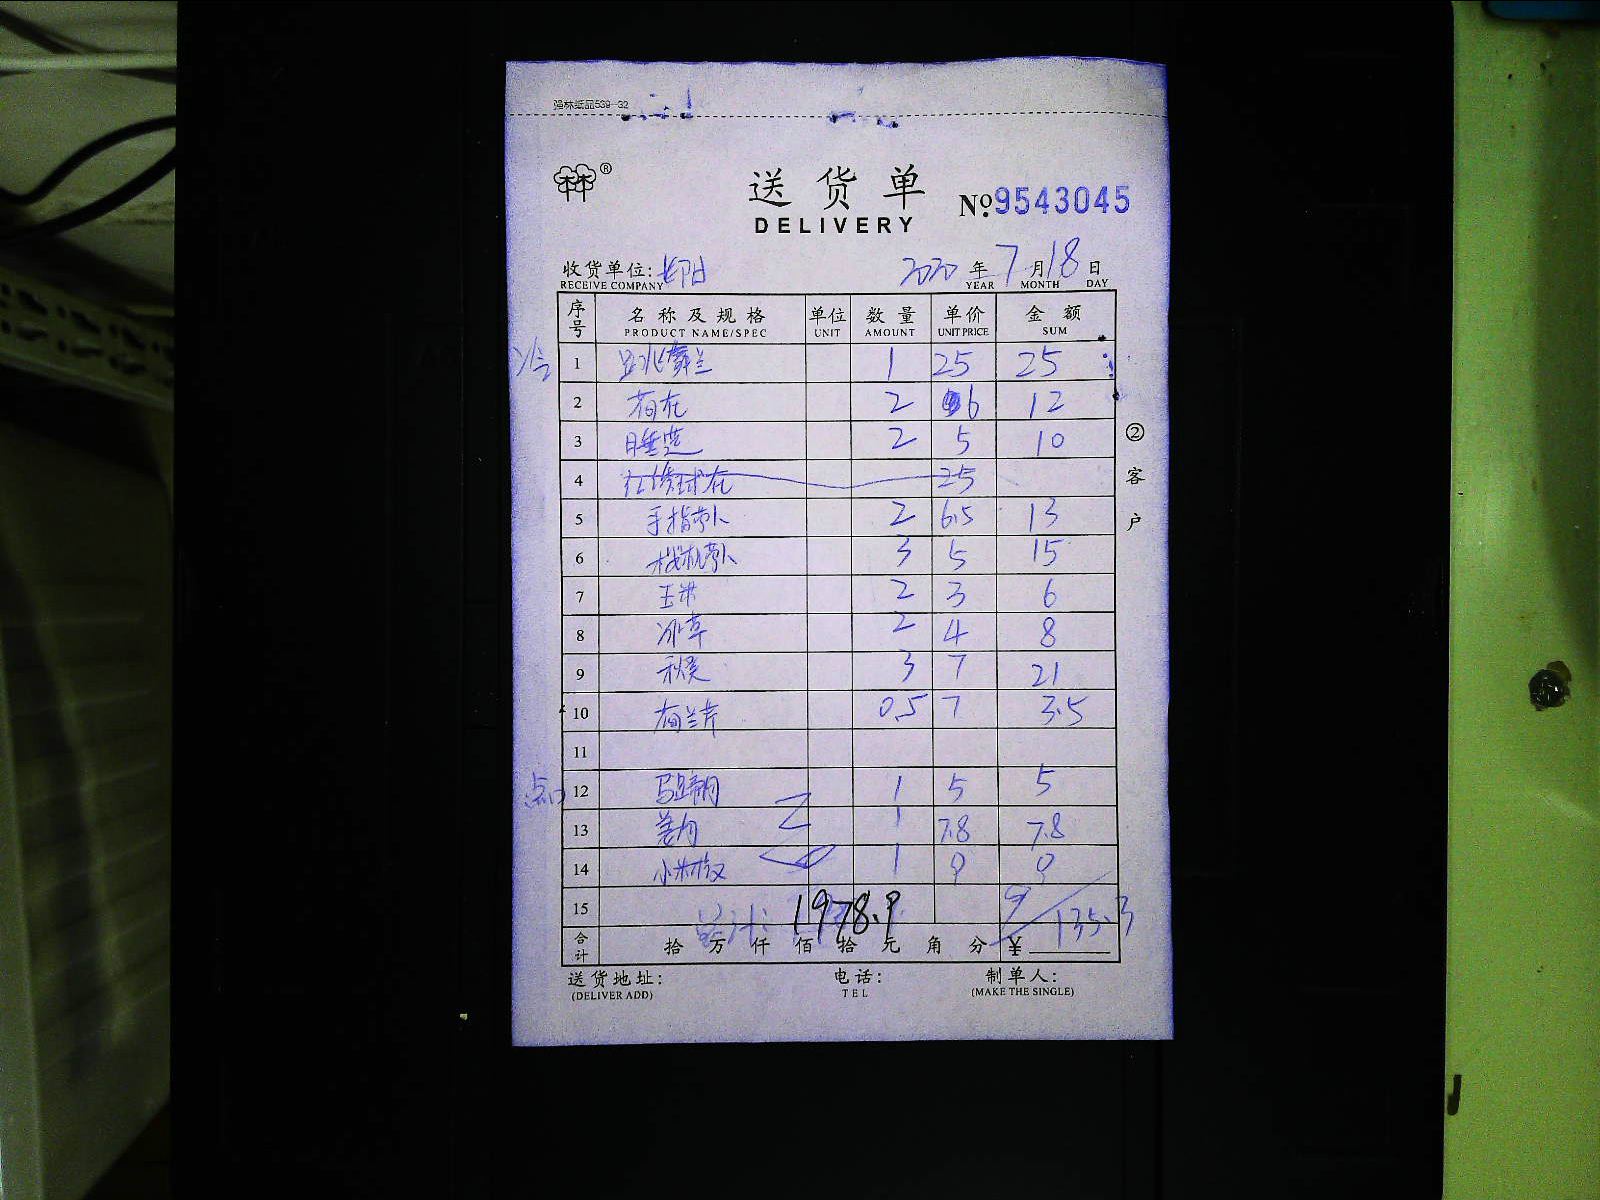 强林纸品539-32
林®
送货单
DELIVERY
№9543045
收货单位:
RECEIVE COMPANY
2020 年 7 月 18 日
YEAR MONTH DAY
序号 名称及规格 单位 数量 单价 金额
PRODUCT NAME/SPEC UNIT AMOUNT UNIT PRICE SUM
冷 1 跳舞兰 1 25 25
2 荷花 2 6 12
3 睡莲 2 5 10
4 红绣球花 25
5 手指萝卜 2 6.5 13
6 萝卜 3 5 15
7 玉米 2 3 6
8 冰草 2 4 8
9 秋葵 3 7 21
10 荷兰芹 0.5 7 3.5
11
点心 12 马蹄肉 1 5 5
13 姜肉 1 7.8 7.8
14 小米椒 1 9 9
15 1978.9
合计 拾万仟佰拾元角分 ¥ 135.3
②客户
送货地址: 电话: 制单人:
(DELIVER ADD) TEL (MAKE THE SINGLE)